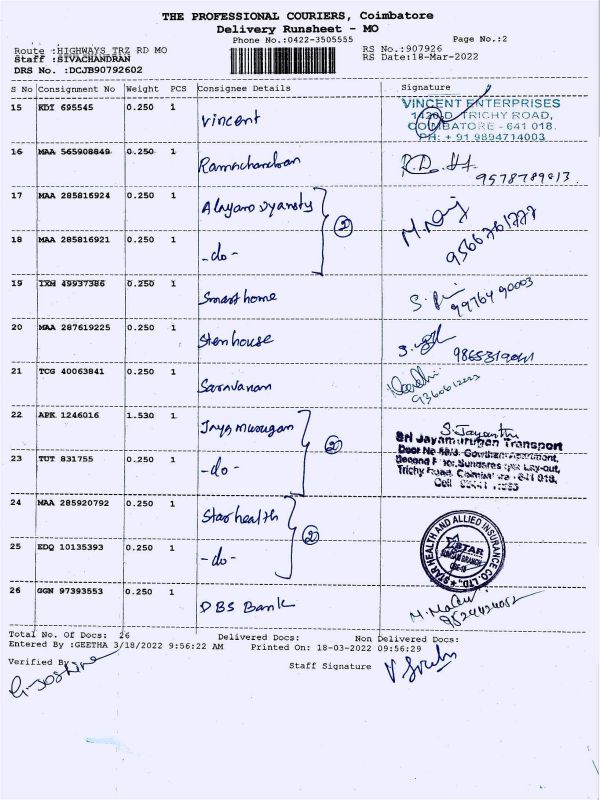 THE PROFESSIONAL COURIERS, Coimbatore
Delivery Runsheet - MO
Phone No.:0422-3505555 Page No.:2
Route :HIGHWAYS TRZ RD MO RS No.:907926
Staff :SIVACHANDRAN RS Date:18-Mar-2022
DRS No. :DCJB90792602
S No Consignment No Weight PCS Consignee Details Signature
15 KDI 695545 0.250 1 Vincent
VINCENT ENTERPRISES
TRICHY ROAD,
COIMBATORE - 641 018.
PH: + 91 9894714003
16 MAA 565908849 0.250 1 Ramachandran
9578789013
17 MAA 285816924 0.250 1
18 MAA 285816921 0.250 1 -do- 2
9566761777
19 IXM 49937386 0.250 1 Smart home
9976490003
20 MAA 287619225 0.250 1 Sten house
21 TCG 40063841 0.250 1 Saravanan
22 APK 1246016 1.530 1 Jaya murugan
23 TUT 831755 0.250 1 -do- 2
S. Jayanthi
Sri Jayamurugan Transport
24 MAA 285920792 0.250 1 Star health
25 EDQ 10135393 0.250 1 -do- 2
STAR HEALTH AND ALLIED INSURANCE CO. LTD.
STAR
26 GGN 97393553 0.250 1 DBS Bank
9524424052
Total No. Of Docs: 26 Delivered Docs: Non Delivered Docs:
Entered By :GEETHA 3/18/2022 9:56:22 AM Printed On: 18-03-2022 09:56:29
Verified By
Staff Signature